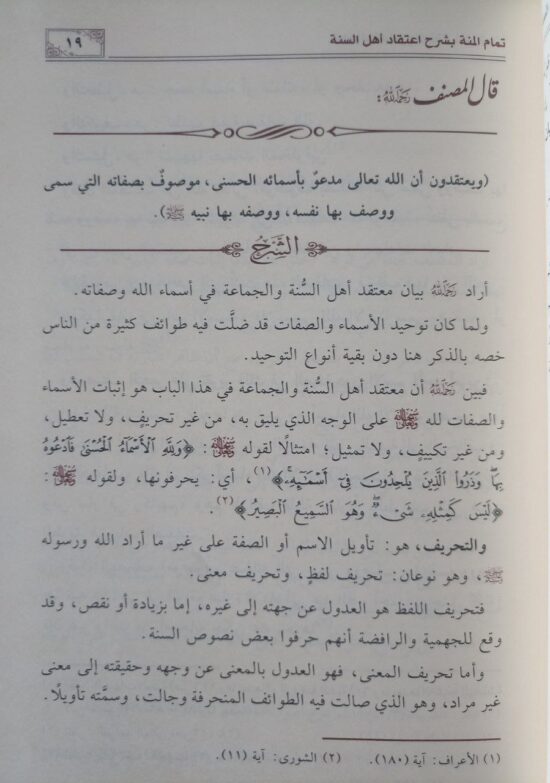 تمام المنة بشرح اعتقاد أهل السنة
١٩
قال المصنف رَحِمَهُ اللَّهُ:
(ويعتقدون أن الله تعالى مدعوٌ بأسمائه الحسنى، موصوفٌ بصفاته التي سمى
ووصف بها نفسه، ووصفه بها نبيه ﷺ).
الشَّرْحُ
أراد رَحِمَهُ اللَّهُ بيان معتقد أهل السُّنة والجماعة في أسماء الله وصفاته.
ولما كان توحيد الأسماء والصفات قد ضلَّت فيه طوائف كثيرة من الناس
خصه بالذكر هنا دون بقية أنواع التوحيد.
فبين رَحِمَهُ اللَّهُ أن معتقد أهل السُّنة والجماعة في هذا الباب هو إثبات الأسماء
والصفات لله على الوجه الذي يليق به، من غير تحريفٍ، ولا تعطيل،
ومن غير تكييفٍ، ولا تمثيل؛ امتثالًا لقوله : ﴿وَلِلَّهِ الْأَسْمَاءُ الْحُسْنَى فَادْعُوهُ
بِهَا وَذَرُوا الَّذِينَ يُلْحِدُونَ فِي أَسْمَائِهِ﴾(١)، أي: يحرفونها، ولقوله :
﴿لَيْسَ كَمِثْلِهِ شَيْءٌ وَهُوَ السَّمِيعُ الْبَصِيرُ﴾(٢)
والتحريف، هو: تأويل الاسم أو الصفة على غير ما أراد الله ورسوله
ﷺ، وهو نوعان: تحريف لفظٍ، وتحريف معنى.
فتحريف اللفظ هو العدول عن جهته إلى غيره، إما بزيادة أو نقص، وقد
وقع للجهمية والرافضة أنهم حرفوا بعض نصوص السنة.
وأما تحريف المعنى، فهو العدول بالمعنى عن وجهه وحقيقته إلى معنى
غير مراد، وهو الذي صالت فيه الطوائف المنحرفة وجالت، وسمَّته تأويلًا.
(١) الأعراف: آية (١٨٠). (٢) الشورى: آية (١١).